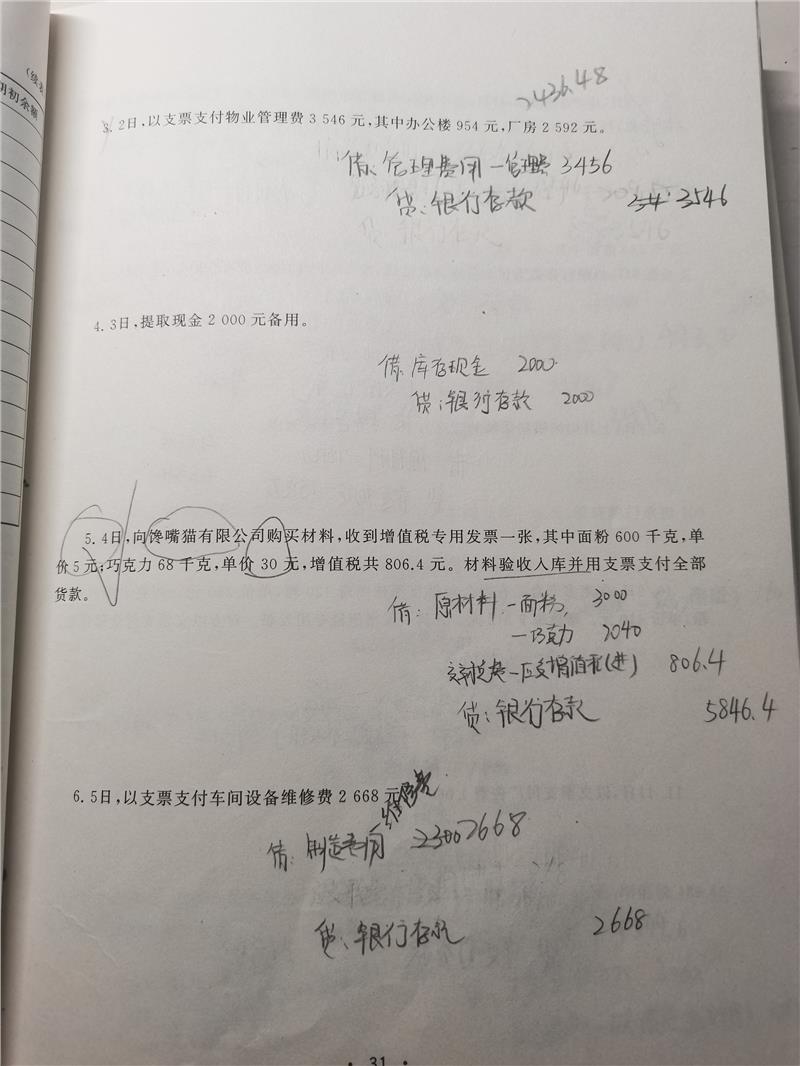 (续表
期初余额
2436.48
3. 2日,以支票支付物业管理费 3 546 元,其中办公楼 954 元,厂房 2 592 元。
借:管理费用—管理费 3456
贷:银行存款 3546
4. 3日,提取现金 2 000 元备用。
借:库存现金 2000
贷:银行存款 2000
5. 4日,向馋嘴猫有限公司购买材料,收到增值税专用发票一张,其中面粉 600 千克,单
价 5 元;巧克力 68 千克,单价 30 元,增值税共 806.4 元。材料验收入库并用支票支付全部
货款。
借:原材料—面粉 3000
—巧克力 2040
应交税费—应交增值税(进) 806.4
贷:银行存款 5846.4
6. 5日,以支票支付车间设备维修费 2 668 元
维修费
借:制造费用 2300 2668
贷:银行存款 2668
• 31 •